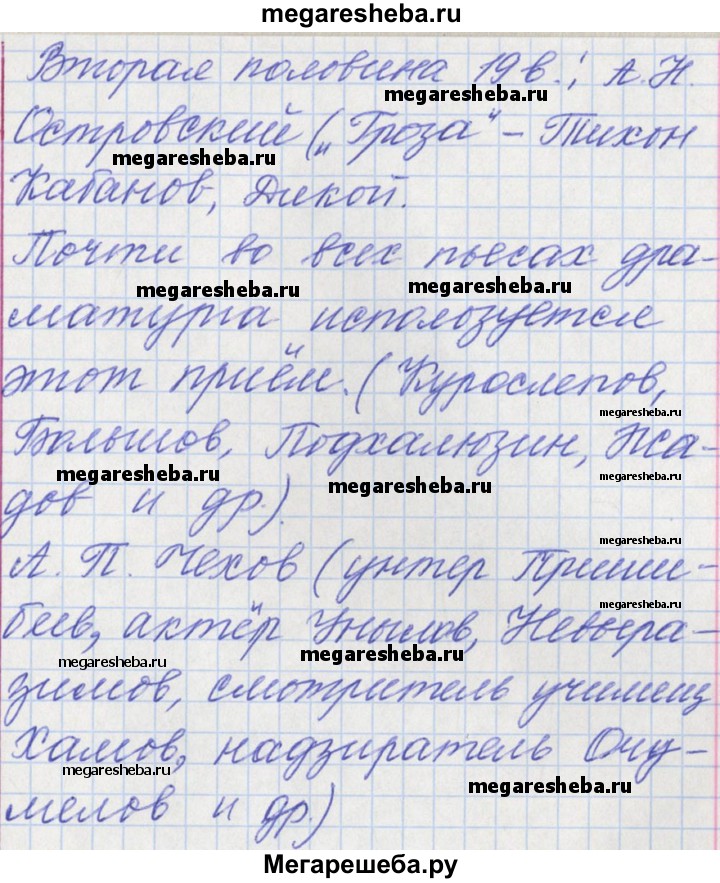 megaresheba.ru
Вторая половина 19 в.: А. Н.
megaresheba.ru
Островский („Гроза“ – Тихон
megaresheba.ru
Кабанов, Дикой.
Почти во всех пьесах дра-
megaresheba.ru megaresheba.ru
матурга используется
megaresheba.ru
этот приём. (Курослепов,
megaresheba.ru
Большов, Подхалюзин, Жа-
megaresheba.ru megaresheba.ru
дов и др.).
megaresheba.ru
А. П. Чехов (унтер Приши-
megaresheba.ru
беев, актёр Унылов, Невыра-
megaresheba.ru megaresheba.ru
зимов, смотритель училищ
Хамов, надзиратель Очу-
megaresheba.ru megaresheba.ru
мелов и др.)
Мегарешеба.ру